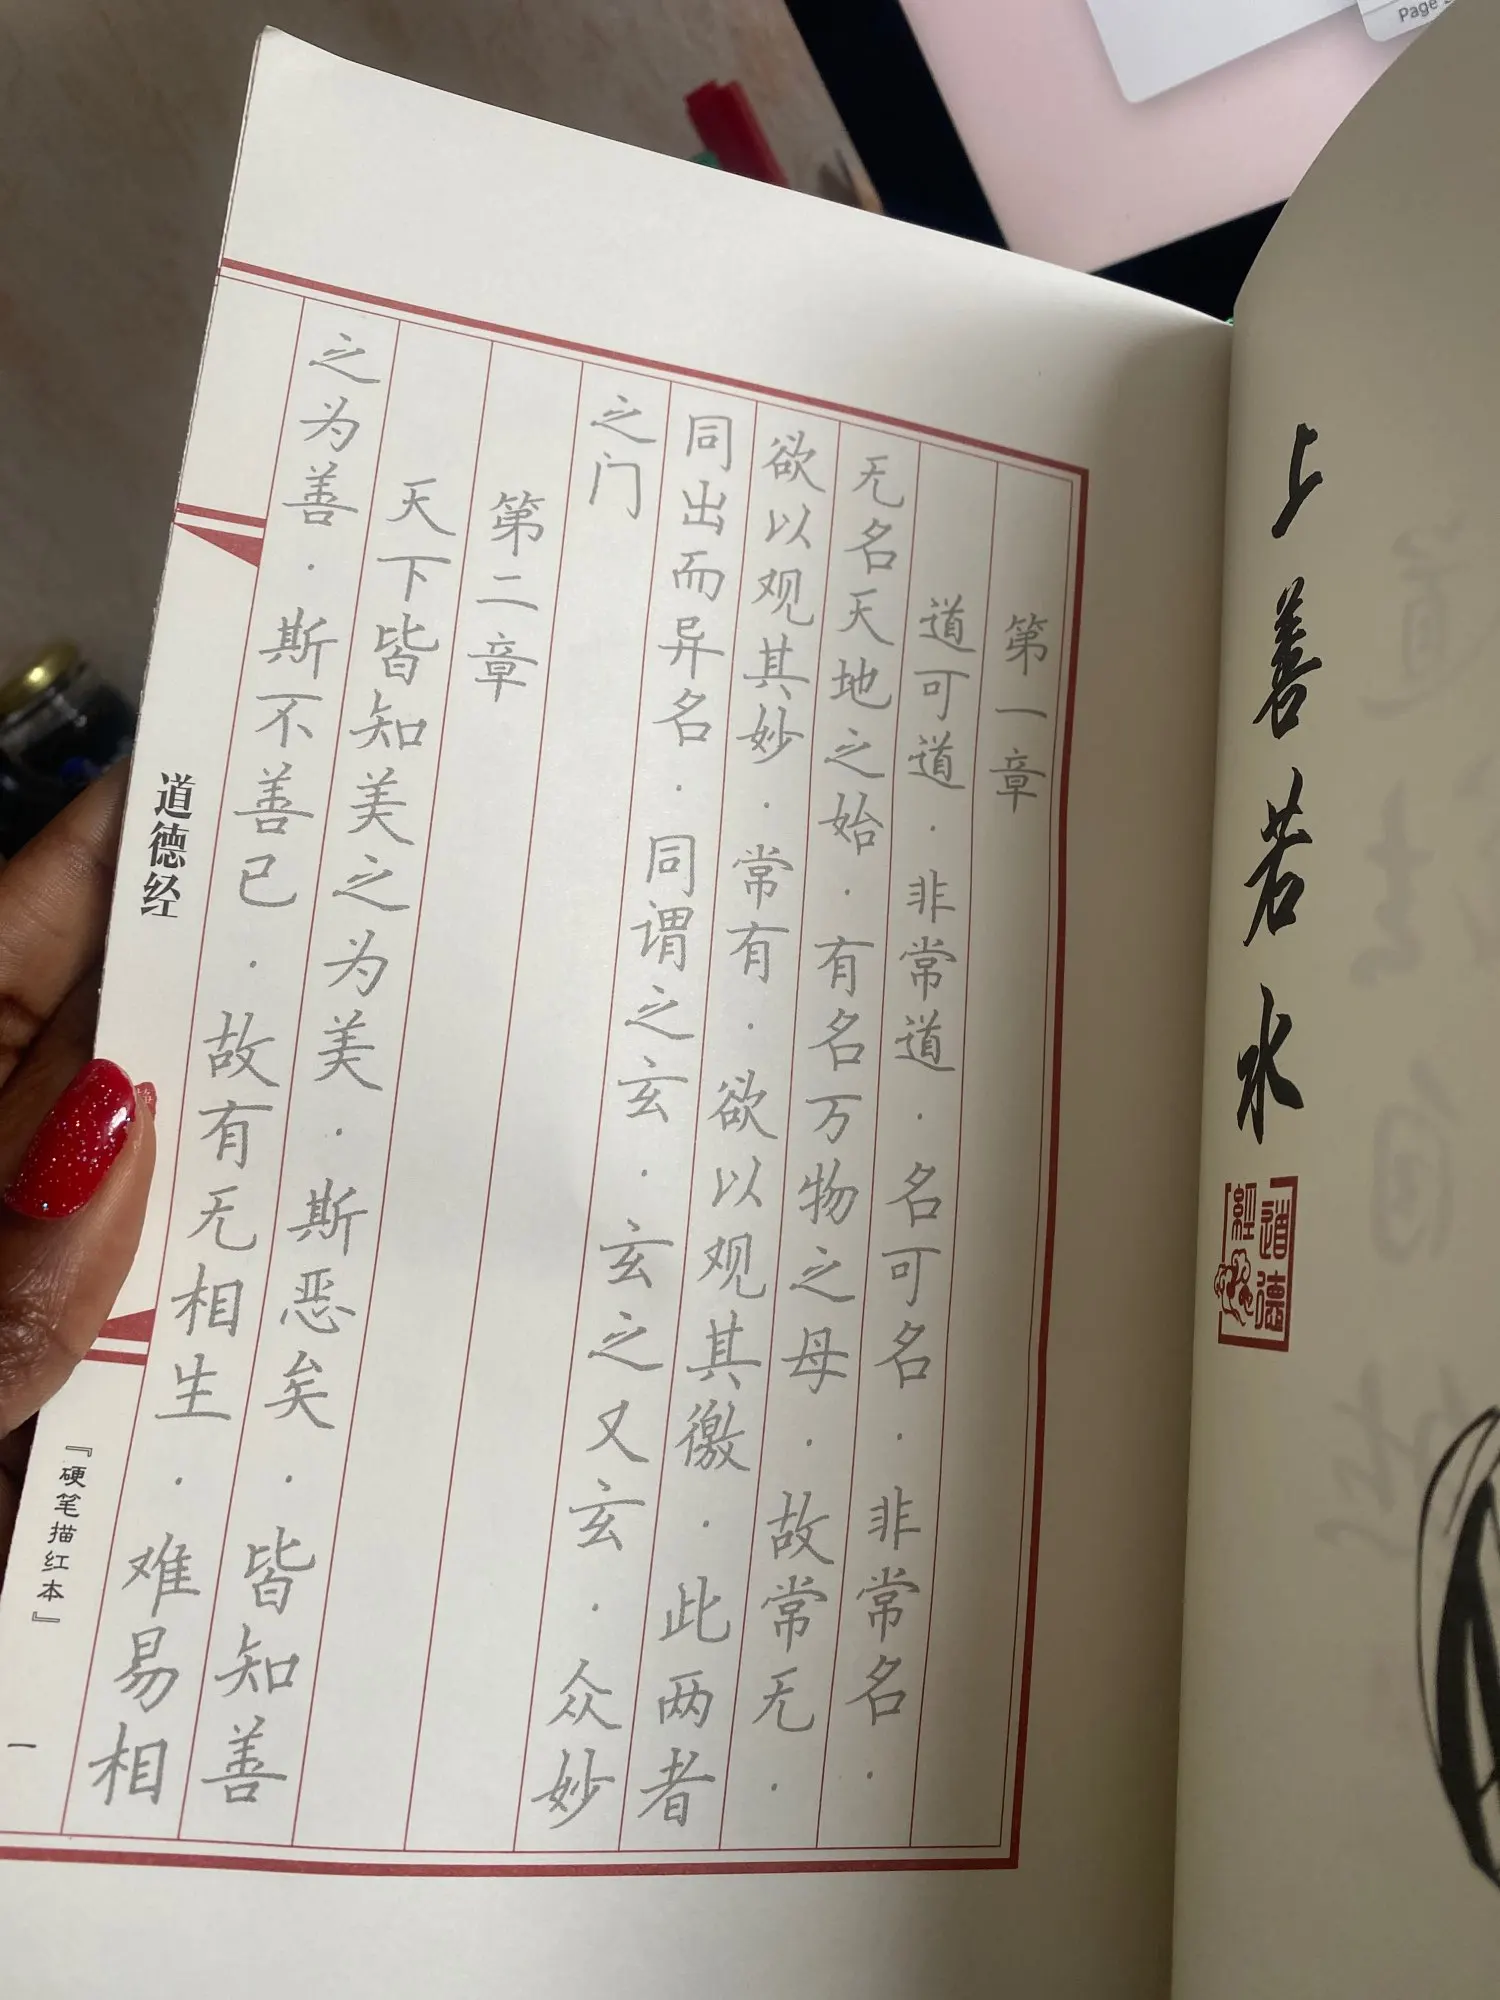 上善若水
道德經
第一章
道可道·非常道·名可名·非常名·
无名天地之始·有名万物之母·故常无·
欲以观其妙·常有·欲以观其徼·此两者
同出而异名·同谓之玄·玄之又玄·众妙
之门
第二章
天下皆知美之为美·斯恶矣·皆知善
之为善·斯不善已·故有无相生·难易相
道德经
『硬笔描红本』
一
Page